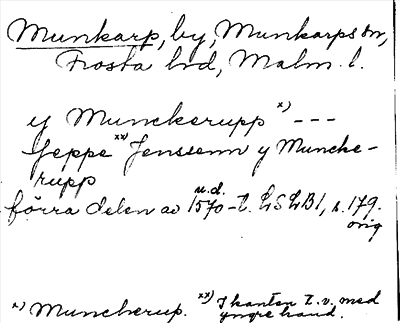 Munkarp, by, Munkarps sn,
Frosta hd, Malm. l.
y Munckerupp x) ---
Jeppe xx) Jenssenn y Muncke-
rupp
u.d.
förra delen av 1570-t. LSLB1, s. 179.
orig
x) Muncherup. xx) I kanten t.v. med
yngre hand.